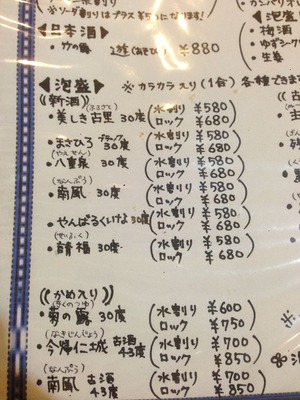 ※ソーダ割りはプラス¥50になります!
◀日本酒▶
・竹の露 2遊(あそび) ¥880
◀泡盛▶ ※カラカラ入り(1合)各種できま
《新酒》
・美しき古里(ふるさと) 30度 (水割り ¥580
ロック ¥680)
・まさひろ ブラック 30度 (水割り ¥580
ロック ¥680)
・八重泉(やえせん) 30度 (水割り ¥580
ロック ¥680)
・南風(なんぷう) 30度 (水割り ¥580
ロック ¥680)
・やんばるくいな 30度 (水割り ¥580
ロック ¥680)
・請福(せいふく) 30度 (水割り ¥580
ロック ¥680)
《かめ入り》
・菊の露(きくのつゆ) 30度 (水割り ¥600
ロック ¥750)
・今帰仁城(なきじんじょう) 古酒 43度 (水割り ¥700
ロック ¥850)
・南風(なんぷう) 古酒 43度 (水割り ¥700
ロック ¥850)
◀泡盛
・梅酒
・ゆずシ
・生姜